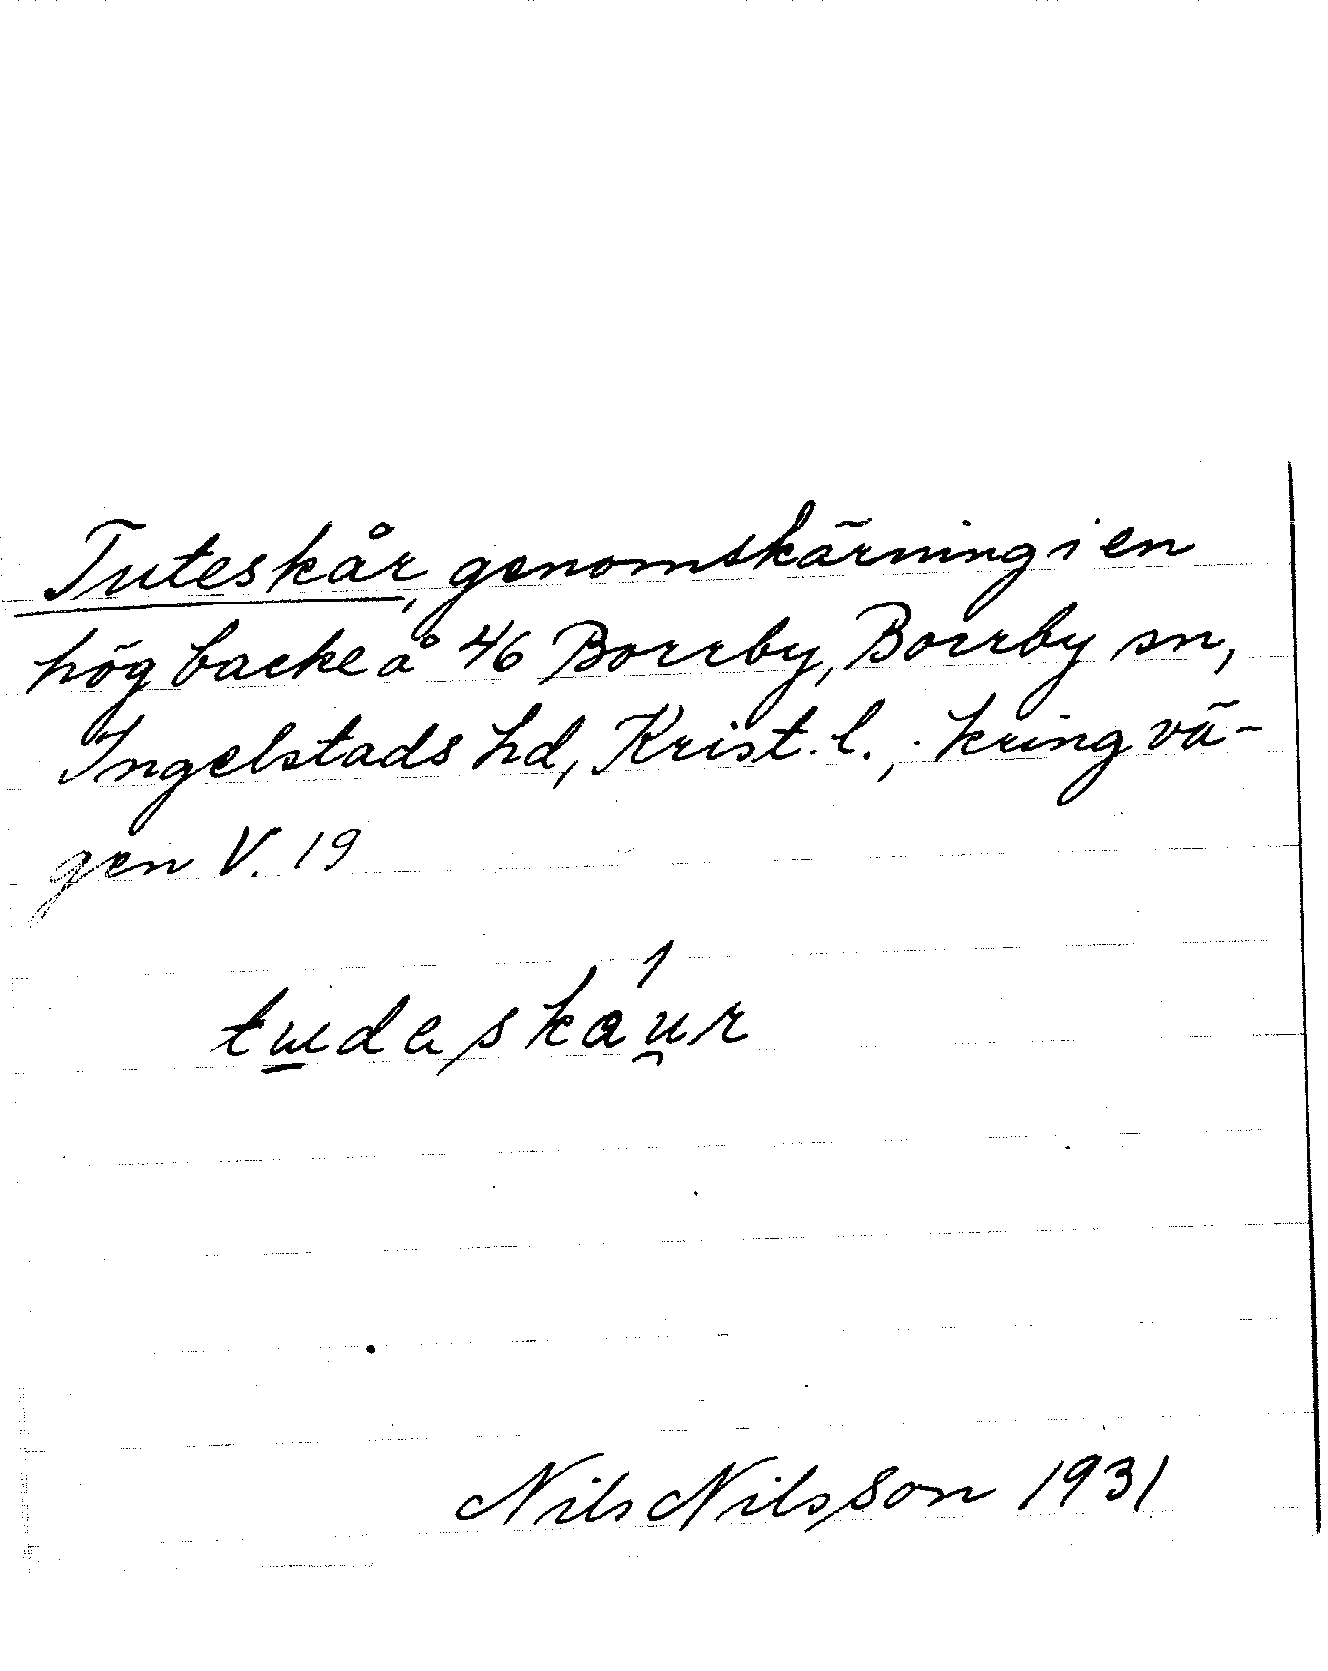 Tuteskår, genomskärning i en
hög backe å 46 Borrby, Borrby sn,
Ingelstads hd, Krist. l., kring vä-
gen V. 19
Nils Nilsson 1931